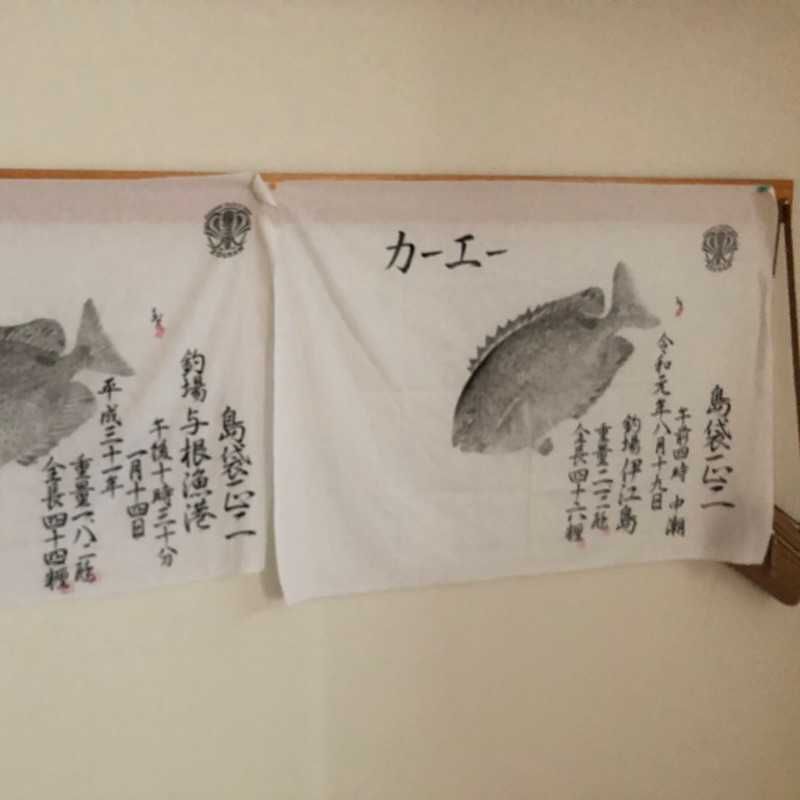 カーエー
島袋正二
午前四時 中潮
令和元年八月十九日
釣場 伊江島
重量二.二瓩
全長四十六糎
島袋正二
釣場 与根漁港
午後十時三十分
一月十四日
平成三十一年
重量一.八二瓩
全長四十四糎